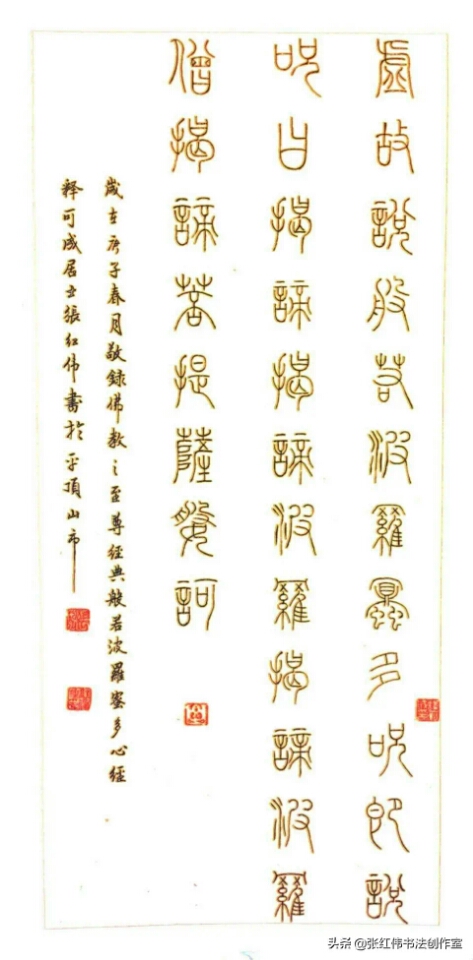 虛故說般若波羅蜜多呪即說
呪曰揭諦揭諦波羅揭諦波羅
僧揭諦菩提薩婆訶
歲在庚子春月敬録佛教之至尊經典般若波羅蜜多心經
释可成居士張红伟書於平頂山市
头条 @张红伟书法创作室